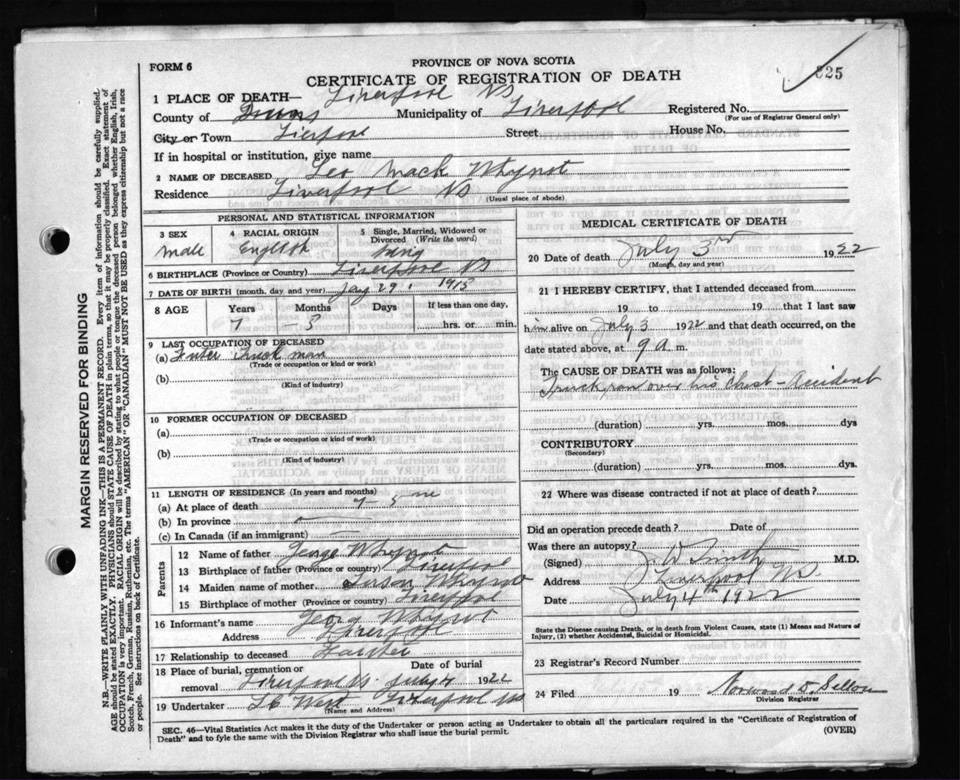 FORM 6
PROVINCE OF NOVA SCOTIA
825
CERTIFICATE OF REGISTRATION OF DEATH
1 PLACE OF DEATH— Liverpool NS
County of Queens Municipality of Liverpool Registered No.
(For use of Registrar General only)
City or Town Lierpool Street House No.
If in hospital or institution, give name
2 NAME OF DECEASED Leo Mack Whynot
Residence Liverpool NS
(Usual place of abode)
PERSONAL AND STATISTICAL INFORMATION
3 SEX 4 RACIAL ORIGIN 5 Single, Married, Widowed or Divorced (Write the word)
Male English
6 BIRTHPLACE (Province or Country) Liverpool NS
7 DATE OF BIRTH (month, day and year) 29 1915
8 AGE Years Months Days If less than one day,
7 5 hrs. or min.
9 LAST OCCUPATION OF DECEASED
(a) Truck man
(Trade or occupation or kind or work)
(b)
(Kind of industry)
10 FORMER OCCUPATION OF DECEASED
(a)
(Trade or occupation or kind or work)
(b)
(Kind of industry)
11 LENGTH OF RESIDENCE (In years and months)
(a) At place of death 7 5
(b) In province
(c) In Canada (if an immigrant)
Parents
12 Name of father George Whynot
13 Birthplace of father (Province or country) Liverpool
14 Maiden name of mother Susan Whynot
15 Birthplace of mother (Province or country) Liverpool
16 Informant's name Georg Whynot
Address Liverpool
17 Relationship to deceased
18 Place of burial, cremation or removal Liverpool NS Date of burial July 4 1922
19 Undertaker West Liverpool NS
(Name and Address)
MEDICAL CERTIFICATE OF DEATH
20 Date of death July 3rd 1922
(Month, day and year)
21 I HEREBY CERTIFY, that I attended deceased from
19 to 19 that I last saw
him alive on July 3 1922 and that death occurred, on the
date stated above, at 9 a m.
The CAUSE OF DEATH was as follows:
Truck ran over his Chest – Accident
(duration) yrs. mos. dys
CONTRIBUTORY
(Secondary)
(duration) yrs. mos. dys.
22 Where was disease contracted if not at place of death?
Did an operation precede death? Date of
Was there an autopsy?
(Signed) J. W Smith M.D.
Address Liverpool NS.
Date July 4th 1922
State the Disease causing Death, or in Death from Violent Causes, state (1) Means and Nature of
Injury, (2) whether Accidental, Suicidal or Homicidal.
23 Registrar's Record Number
24 Filed 19
Division Registrar
SEC. 46—Vital Statistics Act makes it the duty of the Undertaker or person acting as Undertaker to obtain all the particulars required in the "Certificate of Registration of
Death" and to fyle the same with the Division Registrar who shall issue the burial permit. (OVER)
MARGIN RESERVED FOR BINDING
N.B.—WRITE PLAINLY WITH UNFADING INK—THIS IS A PERMANENT RECORD. Every item of information should be carefully supplied.
AGE should be stated EXACTLY. PHYSICIANS should STATE CAUSE OF DEATH in plain terms, so that it may be properly classified. Exact statement of
OCCUPATION is very important. RACIAL ORIGIN will be described by stating to what people or tongue the deceased person belonged whether English, Irish,
Scotch, French, German, Russian, Ruthenian, etc. The terms "AMERICAN" OR "CANADIAN" MUST NOT BE USED as they express citizenship but not a race
or people. See instructions on back of Certificate.